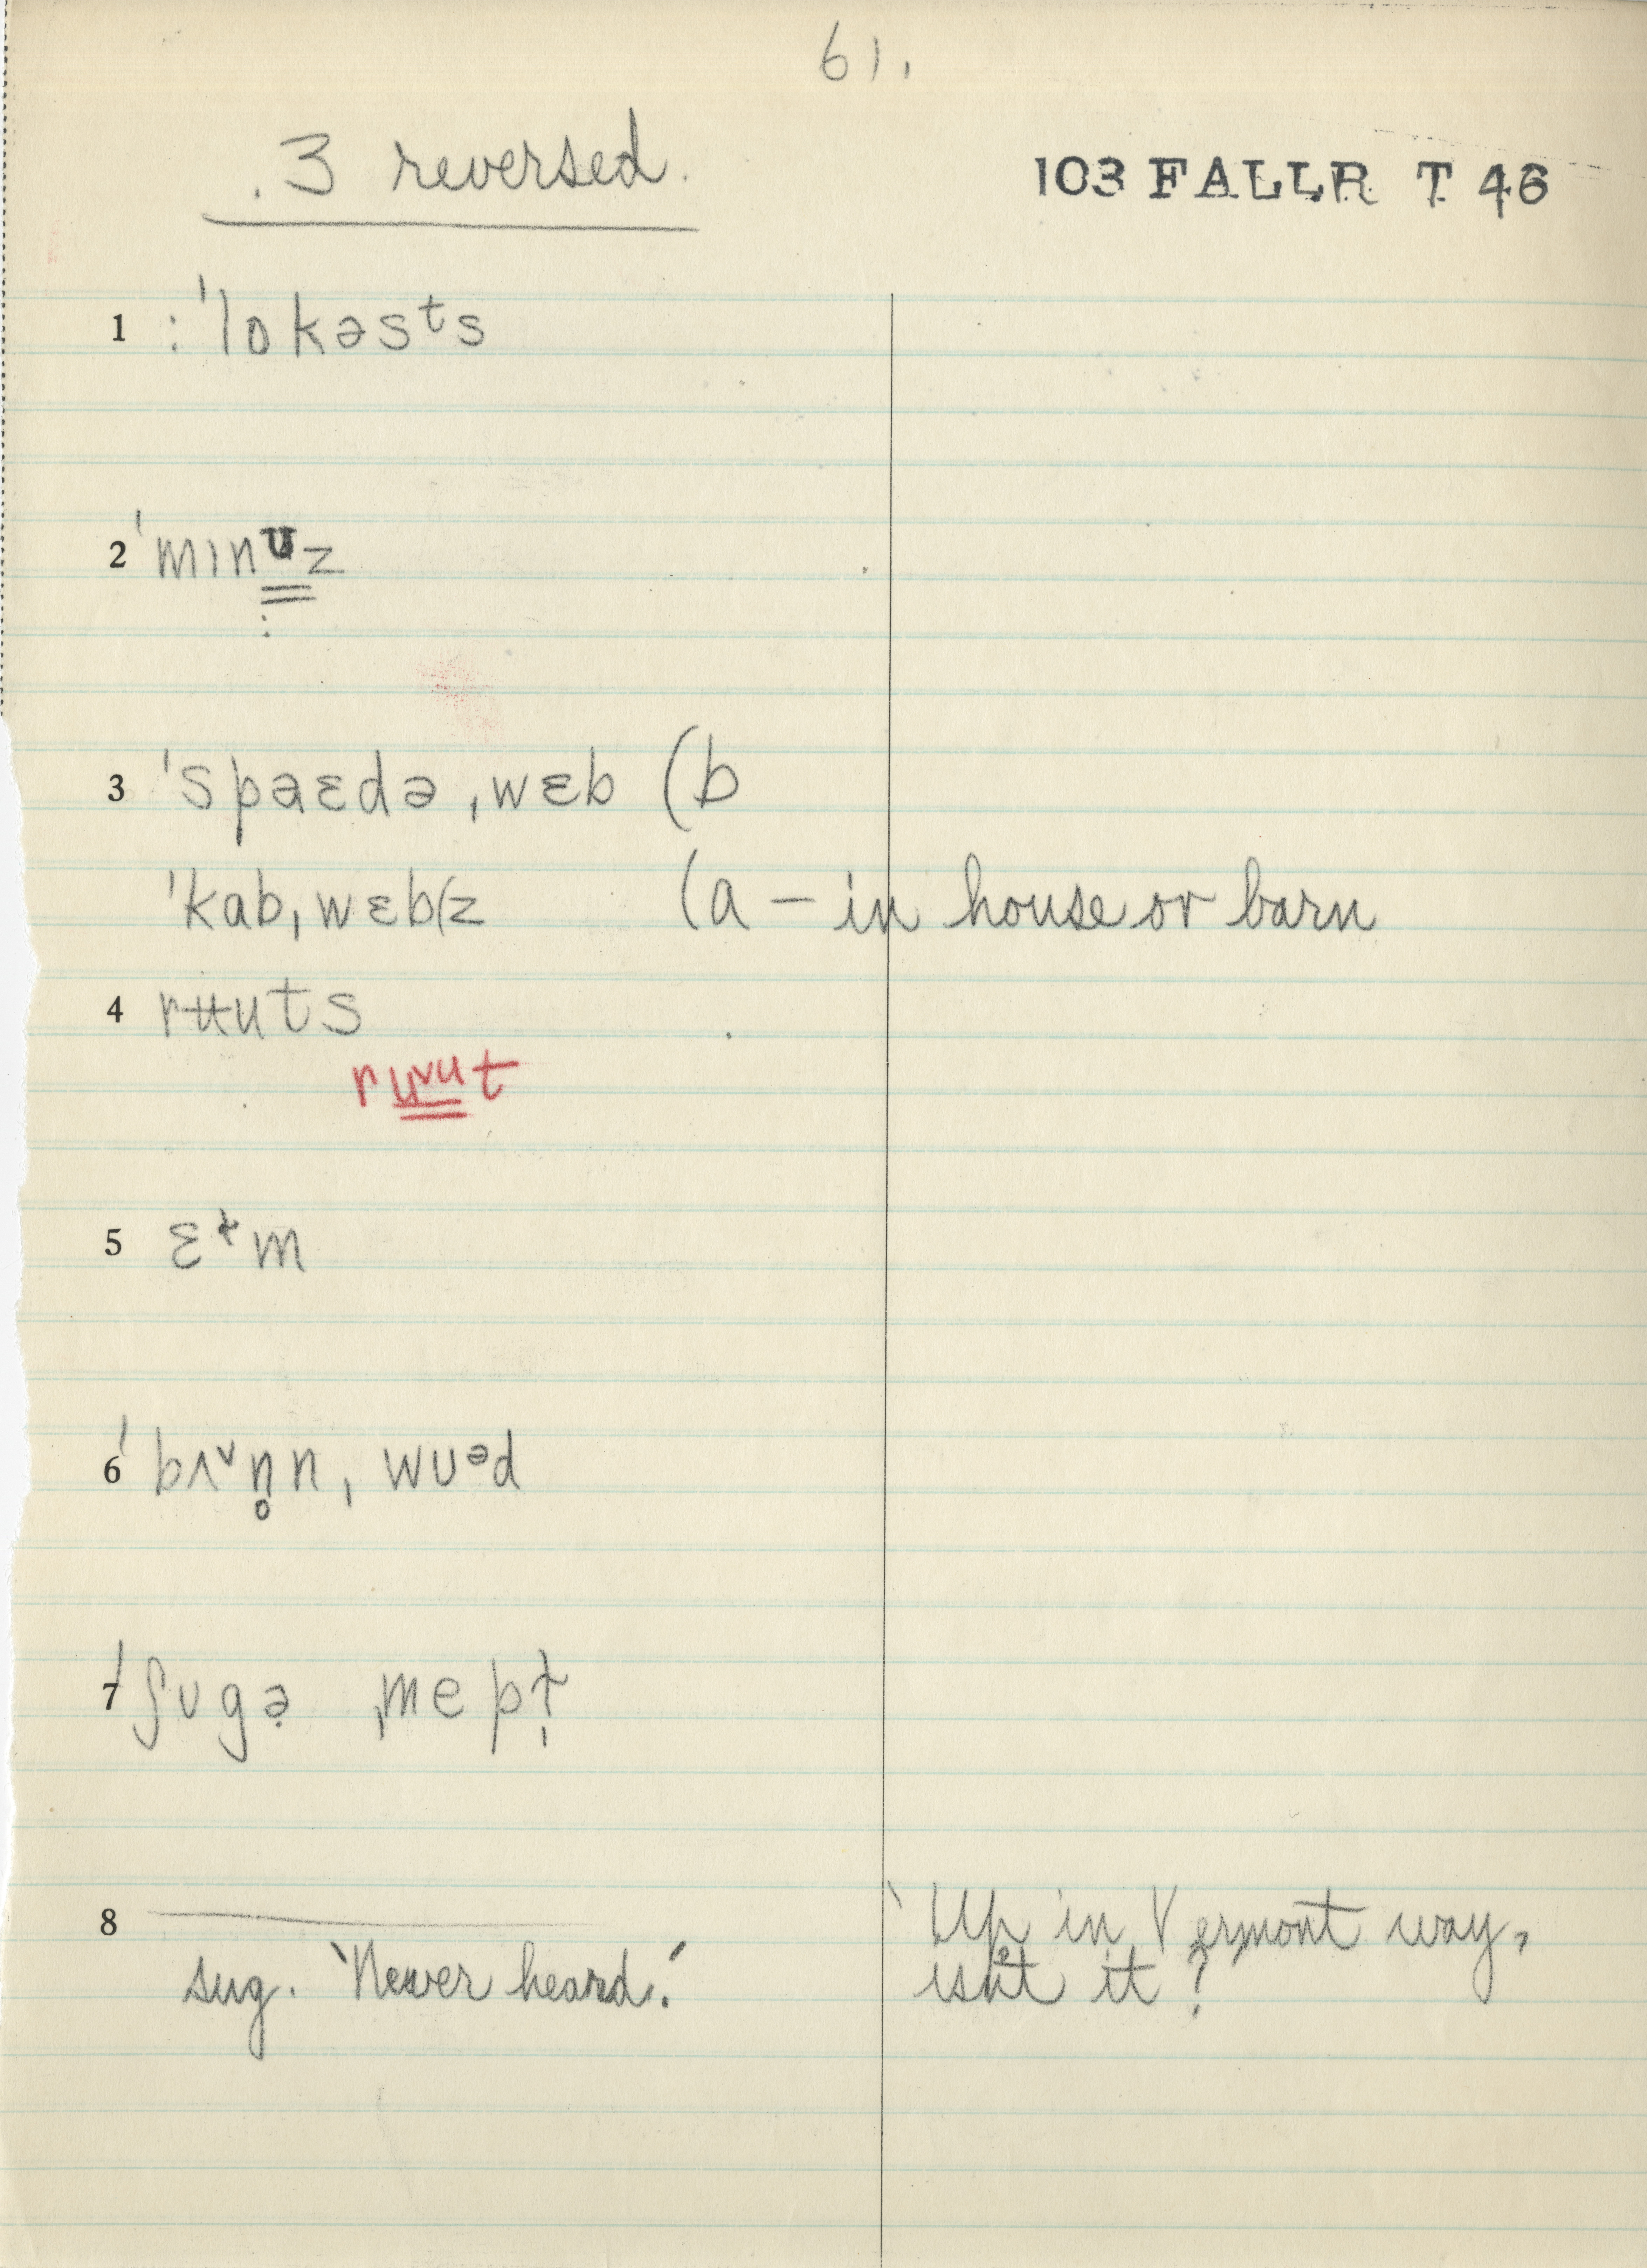 61.
.3 reversed.
103 FALLR T 46
1 :ˈlɒkəsᵗs
2 ˈmɪnᴜz
3 ˈspaɛdə ˌwɛb (b
ˈkab ˌwɛb(z (a – in house or barn
4 rʉuts
ru˅ut
5 ɛɫm
6 ˈbʌ˅n̥n ˌwʊᵊd
7 ˈʃʊgə̣ ˌmepɫ̩
8
sug. ‘Never heard.’
‘Up in Vermont way,
isn't it?’